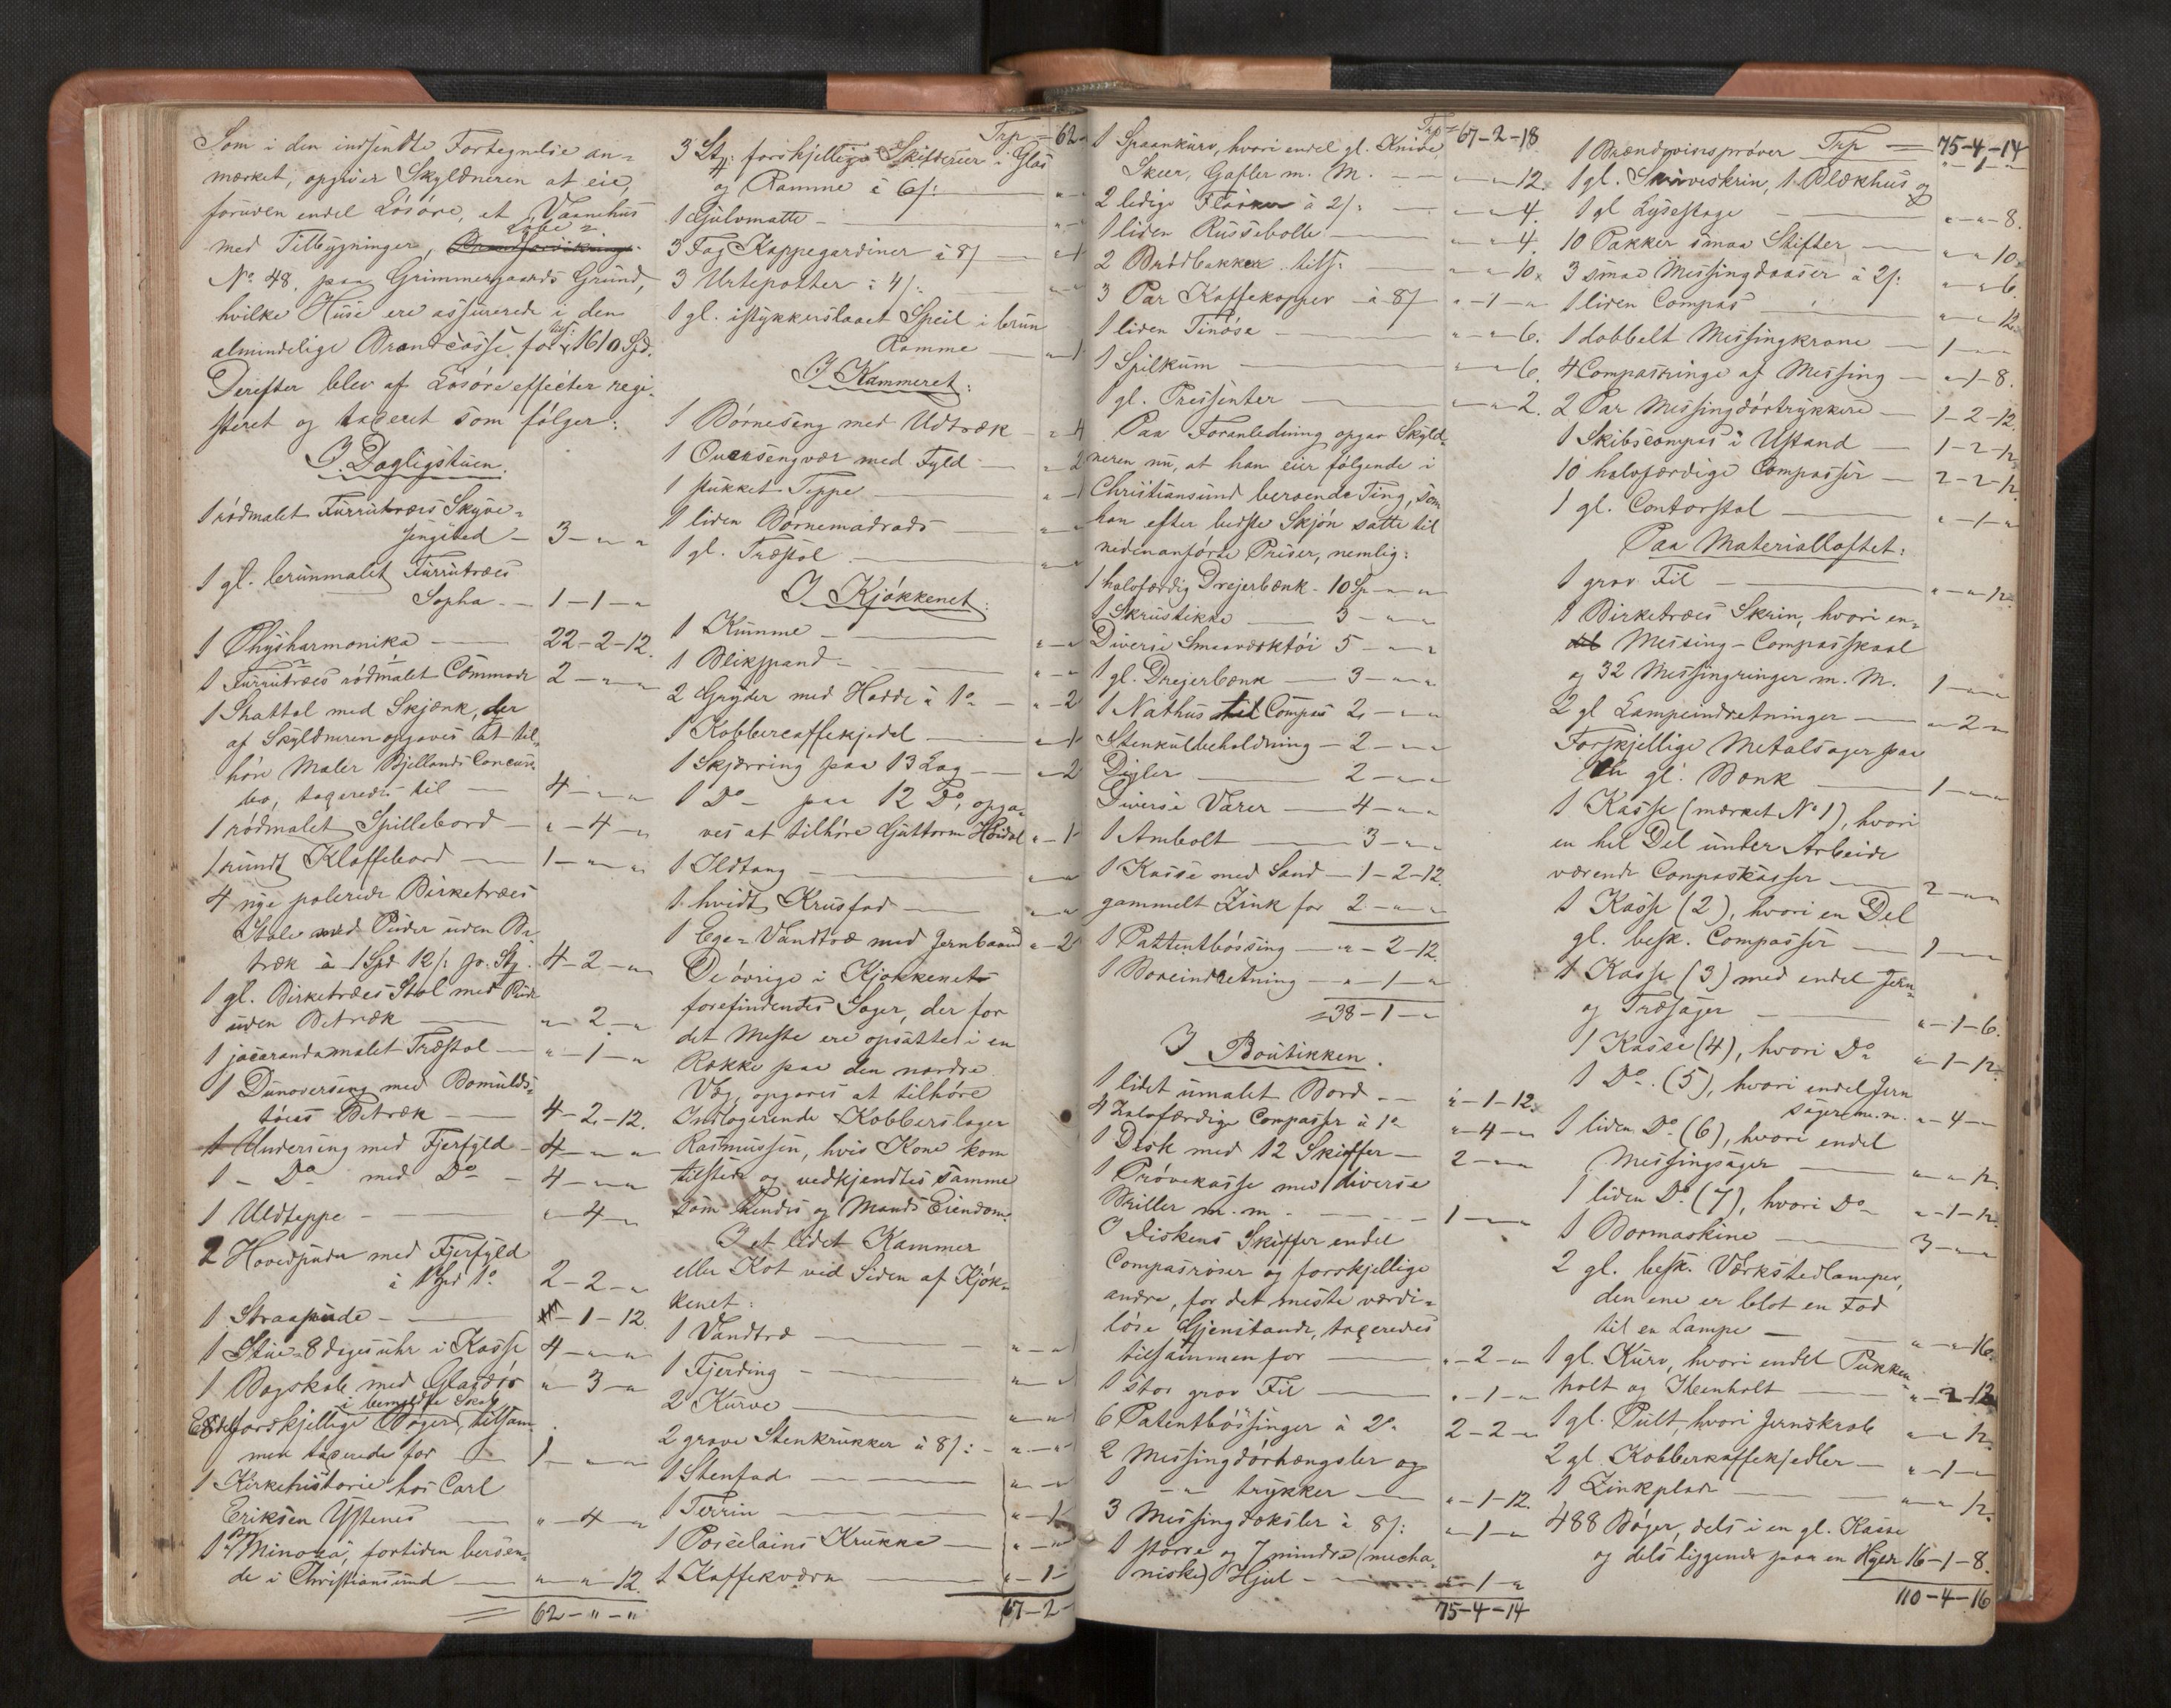 Som i den indsendte Fortegnelse an-
mærket, opgiver Skyldneren at eie,
foruden endel Løsøre, et Vaanehus
Løbe =
med Tilbygninger,
No. 48. paa Grimmergaards Grund,
hvilke Huse ere assurerede i den
almindelige Brandcasse for 1610 Spd.
Derefter blev af Løsøreeffecter regi-
streret og taxeret som følger:
I Dagligstuen.
1 rødmalet Furrutræes Skyve=
sengsted - 3 - " - "
1 gl. brunmalet Furrutræes
Sopha - 1 - 1 - "
1 Physharmonika 22 - 2 - 12.
1 Furrutræes rødmalet Commode 2 - " - "
1 Shattol med Skjænk, der
af Skyldneren opgaves at til-
høre Maler Bjellands Concurs-
bo, taxeredes til 4 - " - "
1 rødmalet Spillebord " - 4 - "
1 rundt Klaffebord 1 - " - "
4 nye polerede Birketræes
Stole med Puder uden Be-
træk à 1 Spd 12 s: pr. Stj. 4 - 2 - "
1 gl. Birketræes Stol med Pude
uden Betræk " - 2 - "
1 jacarandamalet Træstol " - 1 - "
1 Dunoverseng med Bomulds-
tøies Betræk 4 - 2 - 12.
1 Underseng med Fjerfyld 4 - " - "
1 - Do med Do 4 - " - "
1 Uldteppe " - 4 - "
2 Hovedpuder med Fjerfyld
à 1 Spd 1o 2 - 2 - "
1 Straapude - 1 - 12.
1 Stue=8 dages uhr i Kasse 4 - " - "
1 Bogskab med Glasdør " - 3 - "
i bemeldte Skab
Endel forskjellige Bøger, tilsam-
men taxerede for 1 - " - "
1 Kirkehistorie hos Carl
Eriksen Ystenes " - 4 - "
1 "Minona", fortiden beroen-
de i Christiansund " - " 12.
62 - " - "
Trp = 62
3 Stj: forskjellige Skilderier i Glas
og Ramme à 6 s:
1 Gulvmatte
3 Fag Kappegardiner à 8 s
3 Urtepotter à 4 s:
1 gl. istykkerslaaet Speil i brun
Ramme
I Kammeret:
1 Børneseng med Udtræk " 4
1 Overseng vær med Fyld " 2
1 stukket Teppe
1 liden Børnemadrads
1 gl. Træstol
I Kjøkkenet:
1 Kumme
1 Blikspand
2 Gryder med Hadde à 1o " - 2
1 Kobbercaffekjedel " 1
1 Skjærring paa 13 Lag " 2
1 Do - paa 12 Do, opga-
ves at tilhøre Guttorm Hoidal " - 1
1 Ildtang
1 hvidt Krusfad
1 Ege= Vandtræ med Jernbaand " - 2
De øvrige i Kjøkkenet
forefindendes Sager, der for
det Meste ere opsatte i en
Række paa den nordre
Væg, opgaves at tilhøre
Indlogerende Kobberslager
Rasmussen, hvis Kone kom
tilstede og vedkjendtes samme
som Hendes og Mands Eiendom.
I et lidet Kammer
eller Kot ved Siden af Kjøk-
kenet:
1 Vandtræ
1 Fjerding
2 Kurve
2 grove Stenkrukker à 8 s:
1 Stenfad
1 Terrin " - 1
1 Porcelains Krukke
1 Kaffekværn " - 1
67 - 2 -
Trp = 67 - 2 - 18.
1 Spaankurv, hvori endel gl. Knive,
Skeer, Gafler m. M. " - " 12.
2 ledige Flasker à 2 s: " - " 4.
1 liden Russebolle " - " 4.
2 Brødbakker tils: " - " 10.
3 Par Kaffekopper à 8 s " - 1 - "
1 liden Tinøse " - " 6.
1 Spilkum " - " 6.
1 gl. Pressenter " - " 2.
Paa Foranledning opgav Skyld-
neren nu, at han eier følgende i
Christiansund beroende Ting, som
han efter bedste Skjøn satte til
nedenanførte Priser, nemlig:
1 halvfærdig Drejerbænk - 10 Sp - " - "
1 Skrustikke 3 - " - "
Diverse Smaaværktøi 5 - " - "
1 gl. Drejerbænk 3 - " - "
1 Nathus til Compas 2 - " - "
Stenkulbeholdning - 2 - " - "
Digler 2 - " - "
Diverse Varer 4 - " - "
1 Ambolt 3 - " - "
1 Kasse med Sand - 1 - 2 - 12.
gammelt Zink for 2 - " - "
1 Pattentbøssing " - 2 - 12.
1 Boreindretning " - 1 - "
= 38 - 1 - "
I Boutikken.
1 lidet umalet Bord " - 1 - 12.
4 halvfærdige Compasser à 1o " - 4 - "
1 Disk med 12 Skuffer 2 - " - "
1 Prøvekasse med diverse
Briller m. m. 1 - " - "
I Diskens Skuffer endel
Compasroser og forskjellige
andre, for det meste værdi=
løse Gjenstande, taxeredes
tilsammen for " - 2 - "
1 stor grov Fil " - 1 - "
6 Patentbøssinger à 2o 2 - 2 - "
2 Messingdørhængsler og
1 - " - trykker " - 1 - 12.
3 Messingdoksler à 8 s: " - 1 - "
1 større og 7 mindre (mecha-
niske) Hjul " - 1 - "
75 - 4 - 14
Trp = 75 - 4 - 14
1 Brændevinsprøver " - 1 - "
1 gl. Skriveskrin, 1 Blækhus og
1 gl Lysestage " - " - 8.
10 Pakker smaa Stifter " - " 10.
3 smaa Messingdaaser à 2 s: " - " 6.
1 liden Compas " - " 12.
1 dobbelt Messingkrane 1 - " - "
4 Compasringe af Messing " - 1 - 8.
2 Par Messingdørtrykkere 1 - 2 - 12.
1 Skibscompas i Ustand 1 - 2 - 12
10 halvfærdige Compasser 2 - 2 - 12.
1 gl. Contorstol " - 1 - "
Paa Materialloftet:
1 grov Fil " - " 12.
1 Birketræes Skrin, hvori en-
del Messing-Compasskaal
og 32 Messingringer m. M. 1 - " - "
2 gl Lampeindretninger " - 2 - "
Forskjellige Metalsager paa
en gl. Bænk 1 - " - "
1 Kasse (mærket No 1), hvori
en hel Del under Arbeide
værende Compaskasser 2 - " - "
1 Kasse (2), hvori en Del
gl. besk. Compasser 1 - " - "
1 Kasse (3) med endel Jern-
og Træsager " - 1 - 6.
1 Kasse (4), hvori Do " - 1 - 12.
1 Do. (5), hvori endel Jern
sager m. m. " - 4 - "
1 liden Do (6), hvori endel
Messingsager " - " 12.
1 liden Do. (7), hvori Do " - 1 - 12.
1 Bormaskine 3 - " - "
2 gl. besk. Værkstedlamper,
den ene er blot en Fod
til en Lampe " - " 16.
1 gl. Kurv, hvori endel Pukken-
holt og Ibenholt " - 2 - 12
1 gl. Pult, hvori Jernskrab " - " 12.
2 gl. Kobberkaffekjedler " - 1 - "
1 Zinkplade " - " 12.
488 Bøger, dels i en gl. Kasse
og dels liggende paa en Hyer 16 - 1 - 8.
110 - 4 - 16